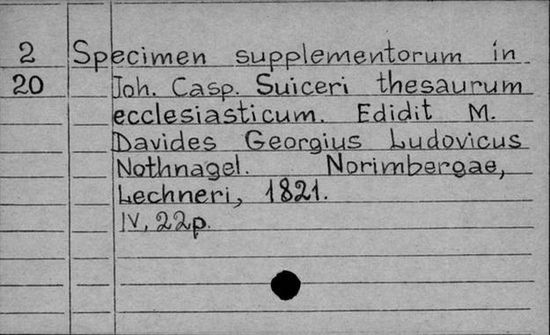 2 Specimen supplementorum in
20 Joh. Casp. Suiceri thesaurum
ecclesiasticum. Edidit M.
Davides Georgius Ludovicus
Nothnagel. Norimbergae,
Lechneri, 1821.
IV, 22p.